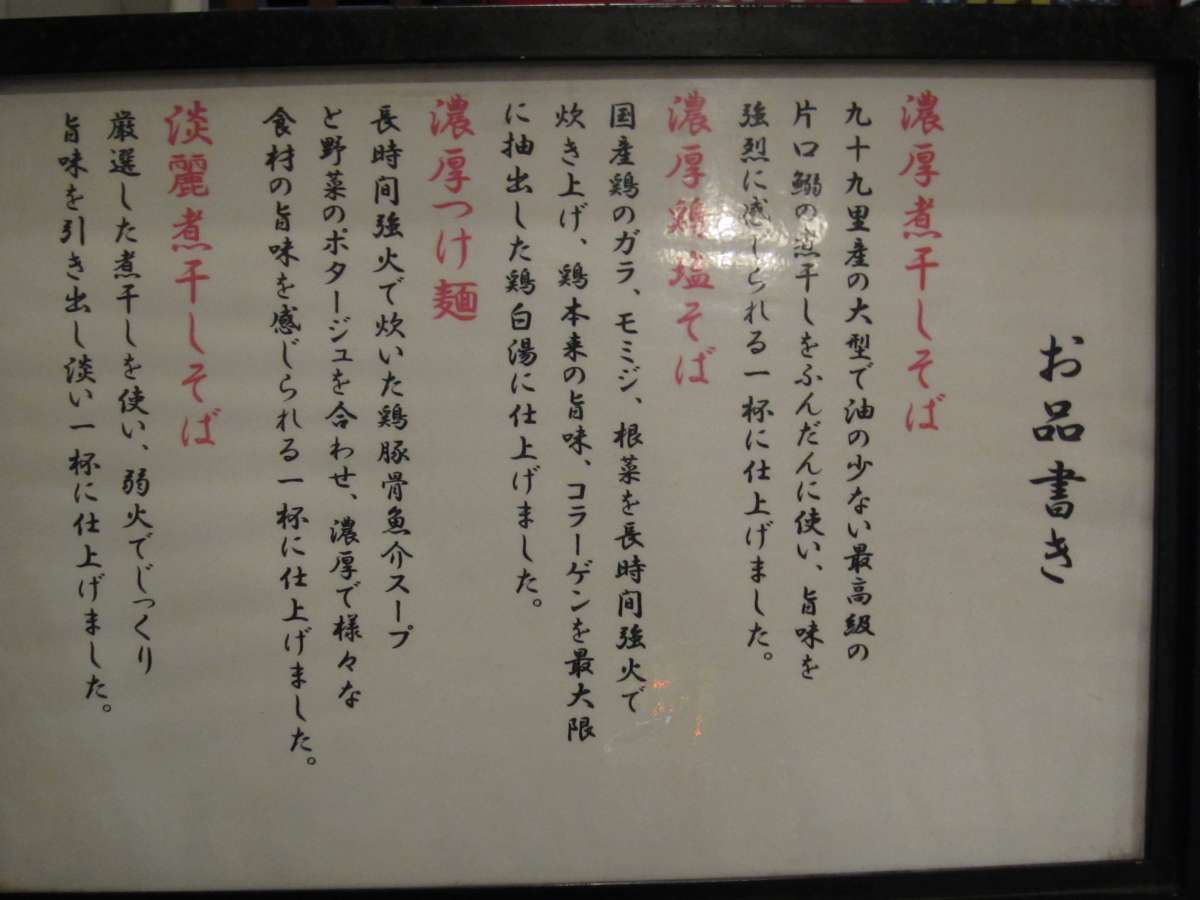 お品書き
濃厚煮干しそば
九十九里産の大型で油の少ない最高級の
片口鰯の煮干しをふんだんに使い、旨味を
強烈に感じられる一杯に仕上げました。
濃厚鶏塩そば
国産鶏のガラ、モミジ、根菜を長時間強火で
炊き上げ、鶏本来の旨味、コラーゲンを最大限
に抽出した鶏白湯に仕上げました。
濃厚つけ麺
長時間強火で炊いた鶏豚骨魚介スープ
と野菜のポタージュを合わせ、濃厚で様々な
食材の旨味を感じられる一杯に仕上げました。
淡麗煮干しそば
厳選した煮干しを使い、弱火でじっくり
旨味を引き出し淡い一杯に仕上げました。